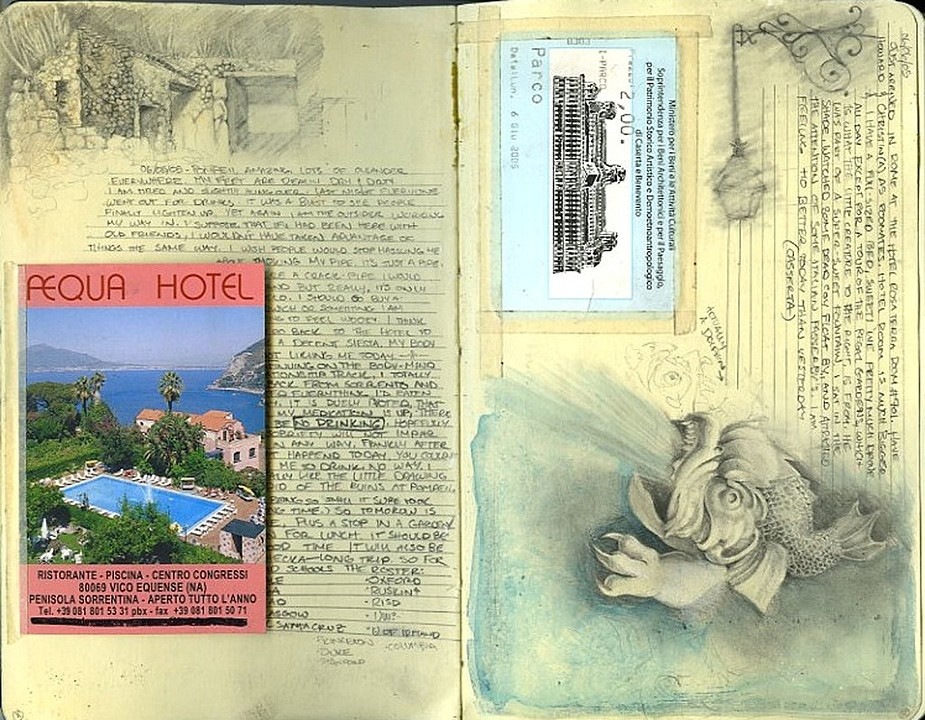 06/05/05- POMPEII, AMAZING. LOTS OF OLEANDER
EVERYWHERE. MY FEET ARE REALLY DRY & DIRTY
I AM TIRED AND SLIGHTLY HUNGOVER. LAST NIGHT EVERYONE
WENT OUT FOR DRINKS. IT WAS A BLAST TO SEE PEOPLE
FINALLY LIGHTEN UP. YET AGAIN I AM THE OUTSIDER WORKING
MY WAY IN. I SUPPOSE THAT IF I HAD BEEN HERE WITH
OLD FRIENDS, I WOULDN'T HAVE TAKEN ADVANTAGE OF
THINGS THE SAME WAY. I WISH PEOPLE WOULD STOP HASSLING ME
ABOUT SMOKING MY PIPE. IT'S JUST A PIPE.
A CRACK-PIPE I WOULD
AND BUT REALLY, IT'S ONLY
I SHOULD GO BUY A
OR SOMETHING I AM
TO FEEL WOOZY I THINK
GO BACK TO THE HOTEL TO
A DECENT SIESTA. MY BODY
LIKING ME TODAY
ON THE BODY-MIND
TRACK. I TOTALLY
BACK FROM SORRENTO AND
EVERYTHING I'D EATEN
IT IS DUELY NOTED, THAT
MY MEDICATION IS UP, THERE
BE NO DRINKING. HOPEFULLY
WILL NOT IMPAIR
IN ANY WAY. FRANKLY AFTER
HAPPEND TODAY, YOU COULDN'T
ME TO DRINK. NO WAY. I
LIKE THE LITTLE DRAWING
OF THE RUINS AT POMPEII,
SO SMALL IT SURE TOOK
TIME.) SO TOMOROW IS
PLUS A STOP IN A GARDEN
FOR LUNCH. IT SHOULD BE
TIME IT WILL ALSO BE
LONG TRIP. SO FOR
SCHOOLS THE ROSTER:
OXFORD
RUSKIN
RISD
SANTA CRUZ
PRINCETON
COLUMBIA
DUKE
STANFORD
ÆQUA HOTEL
RISTORANTE - PISCINA - CENTRO CONGRESSI
80069 VICO EQUENSE (NA)
PENISOLA SORRENTINA - APERTO TUTTO L'ANNO
Tel. +39 081 801 53 31 pbx - fax +39 081 801 50 71
Ministero per i Beni e le Attività Culturali
Soprintendenza per i Beni Architettonici e per il Paesaggio,
per il Patrimonio Storico Artistico e Demoetnoantropologico
di Caserta e Benevento
2,00
I-PARCO
Parco
6 Giu 2005
06/06/05
JUST ARRIVED IN ROME AT THE HOTEL ROSA TERRA ROOM #904. I HAVE
HOWARD & CHRISTIN(A) AS ROOMATES. HOTEL ROOM IS MUCH BIGGER
& I HAVE A FULL-SIZED BED, SWEET! WE PRETTY MUCH DROVE
ALL DAY EXCEPT FOR A TOUR OF THE GARDENS, WHICH
IS WHAT THE LITTLE CREATURE TO THE RIGHT IS FROM. HE
WAS PART OF A SUPER-SWEET FOUNTAIN. I SAT IN THE
SHADE WATCHED SOME DEAD FISH FLOAT BY, AND ATTRACTED
THE ATTENTION OF SOME ITALIAN I AM
FEELING TO BETTER TODAY THAN YESTERDAY
(CASSERTA)
ACTUALLY A DOLPHIN